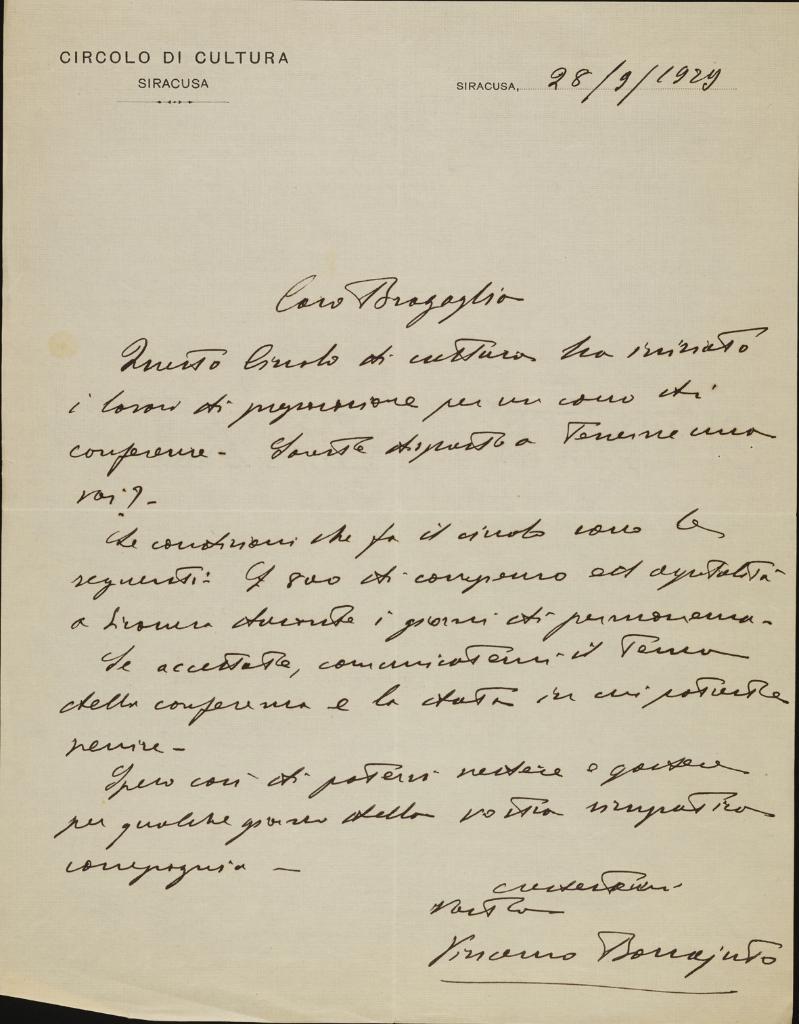 CIRCOLO DI CULTURA
SIRACUSA
SIRACUSA, 28/9/1929
Caro Bragaglia
Questo Circolo di cultura ha iniziato
i lavori di preparazione per un corso di
conferenze - Sareste disposto a tenerne una
voi? -
Le condizioni che fa il circolo sono le
seguenti: £ 800 di compenso ed ospitalità
a Siracusa durante i giorni di permanenza -
Se accettate, comunicatemi il tema
della conferenza e la data in cui potreste
venire -
Spero così di potervi vedere e godere
per qualche giorno della vostra simpatica
compagnia -
credetemi
vostro
Vincenzo Bonajuto